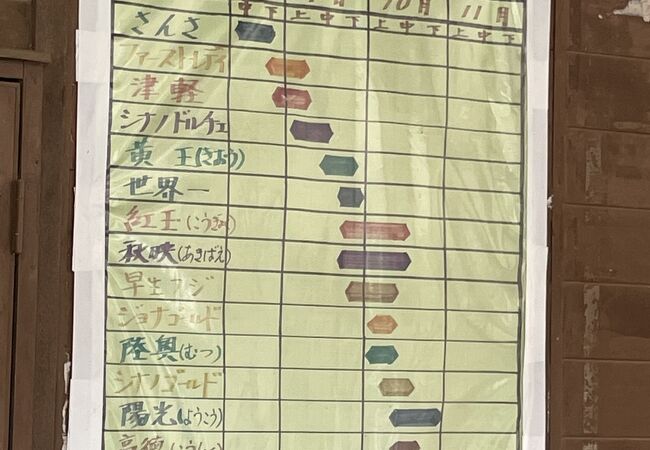 10月 11月
中 下 上 中 下 上 中 下 上 中 下
さんさ
ファーストレディ
津軽
シナノドルチェ
黄王(きおう)
世界一
紅玉(こうぎょく)
秋映(あきばえ)
早生フジ
ジョナゴールド
陸奥(むつ)
シナノゴールド
陽光(ようこう)
高徳